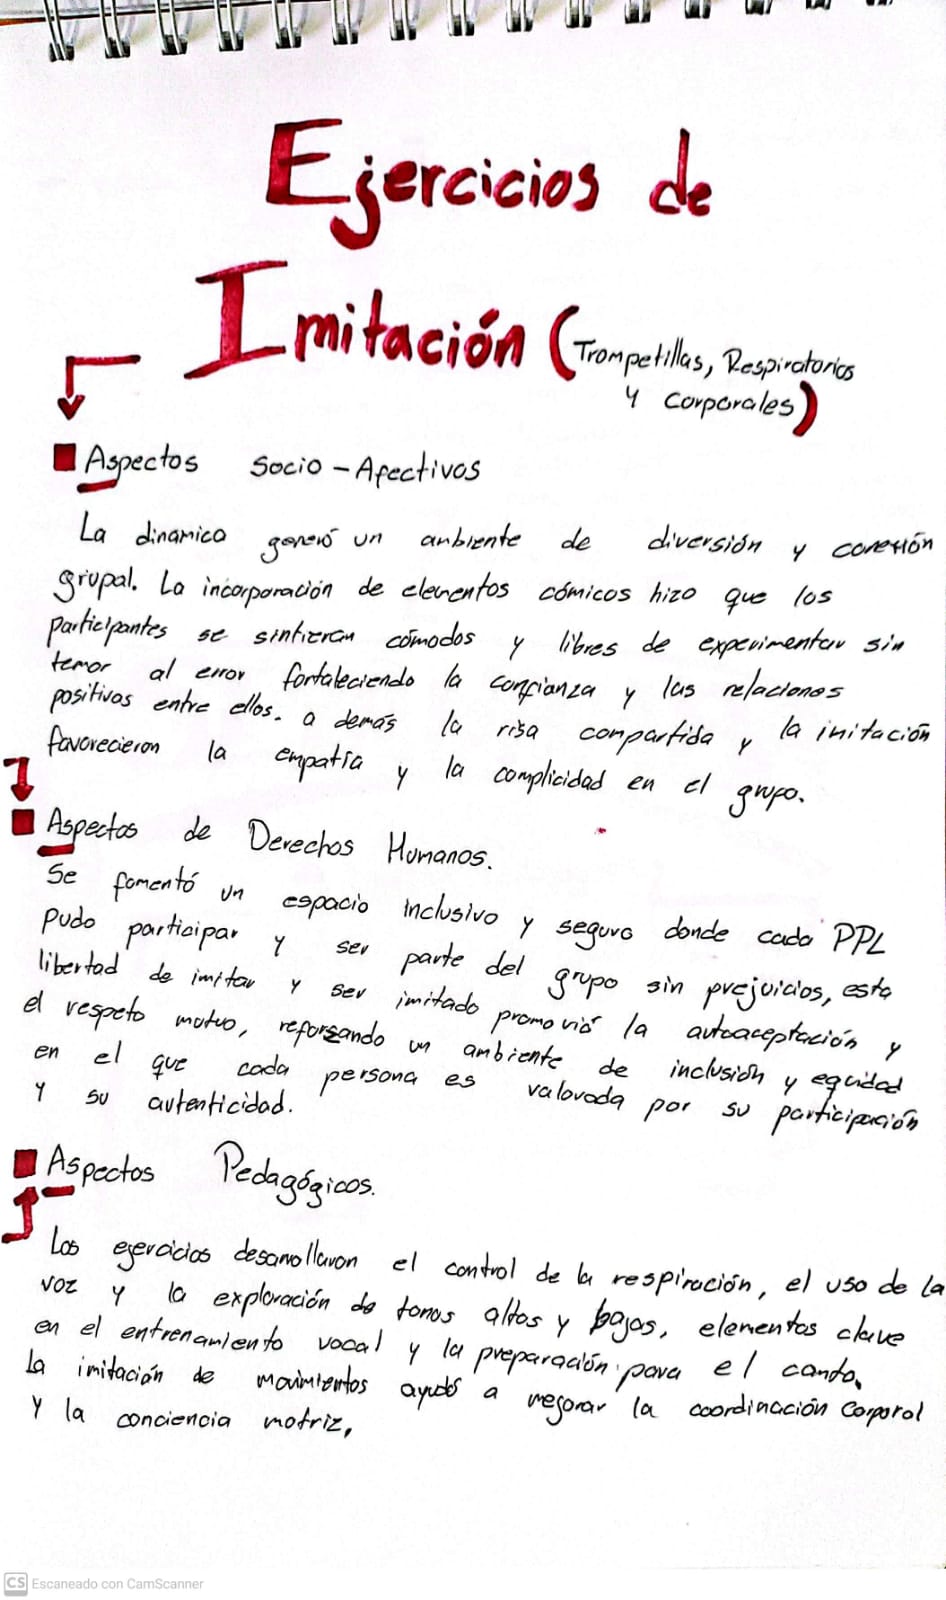 Ejercicios de
Imitación (Trompetillas, Respiratorios
y corporales)
Aspectos Socio-Afectivos
La dinamica generó un ambiente de diversión y conexión
grupal. La incorporación de elementos cómicos hizo que los
participantes se sintieran cómodos y libres de experimentar sin
temor al error fortaleciendo la confianza y las relaciones
positivos entre ellos. a demás la risa compartida y la imitación
favorecieron la empatía y la complicidad en el grupo.
Aspectos de Derechos Humanos.
Se fomentó un espacio inclusivo y seguro donde cada PPL
pudo participar y ser parte del grupo sin prejuicios, esta
libertad de imitar y ser imitado promovió la autoaceptación y
el respeto mutuo, reforzando un ambiente de inclusión y equidad
en el que cada persona es valorada por su participación
y su autenticidad.
Aspectos Pedagógicos.
Los ejercicios desarrollaron el control de la respiración, el uso de la
voz y la exploración de tonos altos y bajos, elementos clave
en el entrenamiento vocal y la preparación para el canto.
La imitación de movimientos ayudó a mejorar la coordinación corporal
y la conciencia motriz.
CS Escaneado con CamScanner